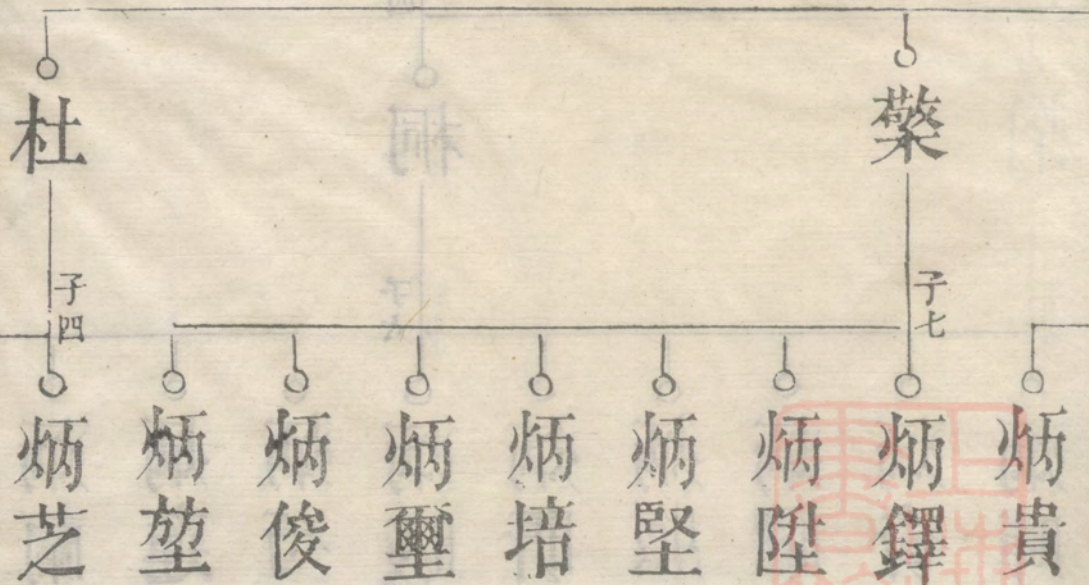 檠
子七
杜
子四
炳貴
炳鐸
炳陞
炳堅
炳培
炳璽
炳俊
炳堃
炳芝